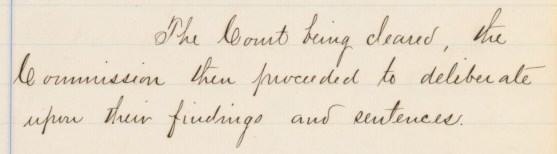 The Court being cleared, the
Commission then proceeded to deliberate
upon their findings and sentences.